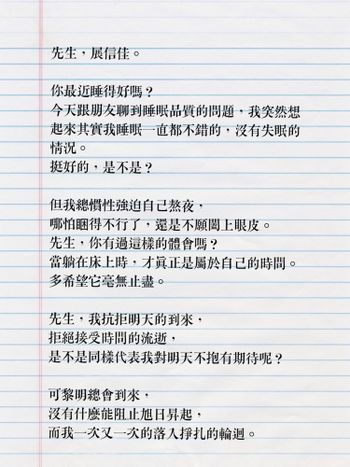 先生，展信佳。
你最近睡得好嗎？
今天跟朋友聊到睡眠品質的問題，我突然想
起來其實我睡眠一直都不錯的，沒有失眠的
情況。
挺好的，是不是？
但我總慣性強迫自己熬夜，
哪怕睏得不行了，還是不願闔上眼皮。
先生，你有過這樣的體會嗎？
當躺在床上時，才真正是屬於自己的時間。
多希望它毫無止盡。
先生，我抗拒明天的到來，
拒絕接受時間的流逝，
是不是同樣代表我對明天不抱有期待呢？
可黎明總會到來，
沒有什麼能阻止旭日昇起，
而我一次又一次的落入掙扎的輪迴。